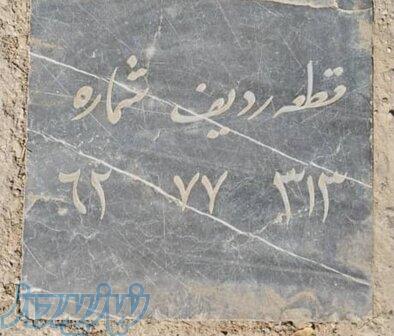 قطعه ردیف شماره
۳۱۳ ۷۷ ۶۲
نیازپرداز